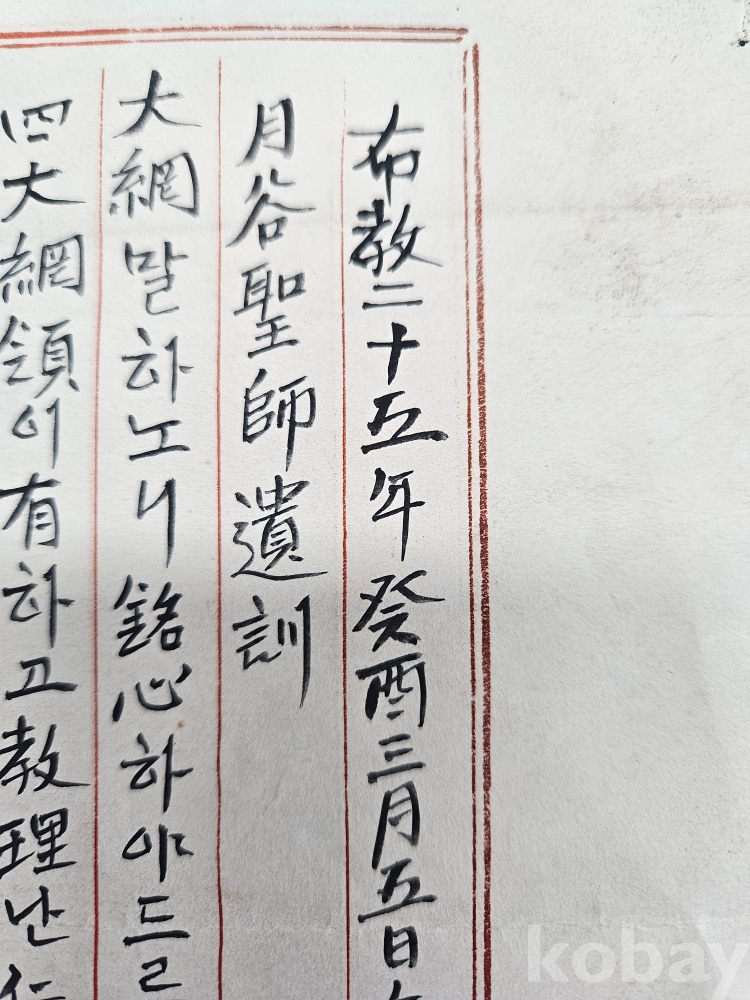 布教二十五年癸酉三月五日
月谷聖師遺訓
大網말하노니銘心하야드르
四大網領이有하고教理난仁
kobay